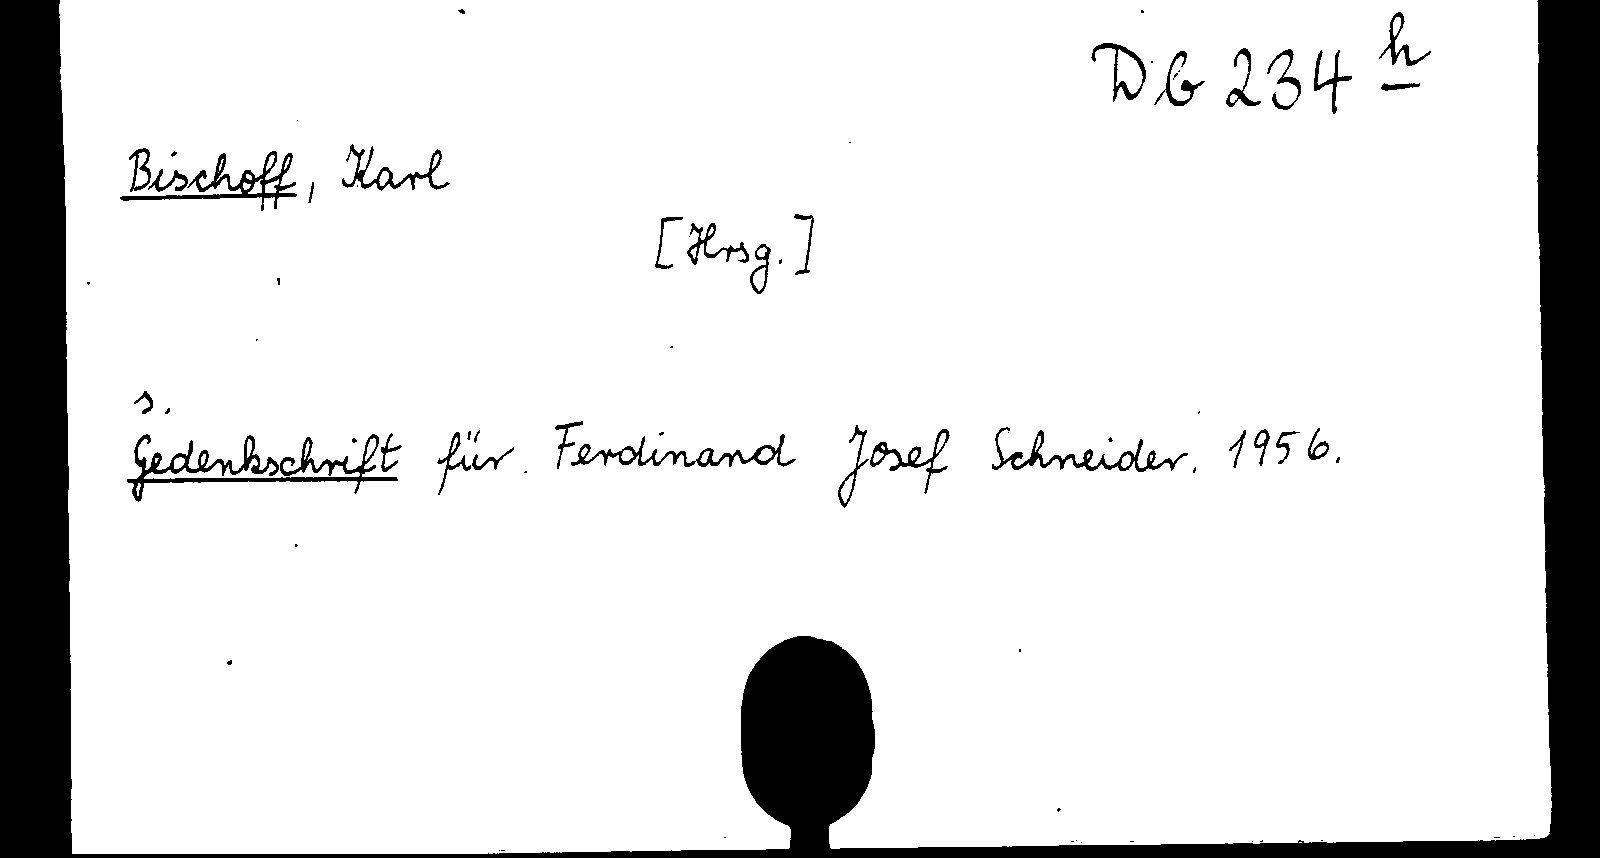 Db 234 h
Bischoff, Karl
[Hrsg.]
s.
Gedenkschrift für Ferdinand Josef Schneider. 1956.